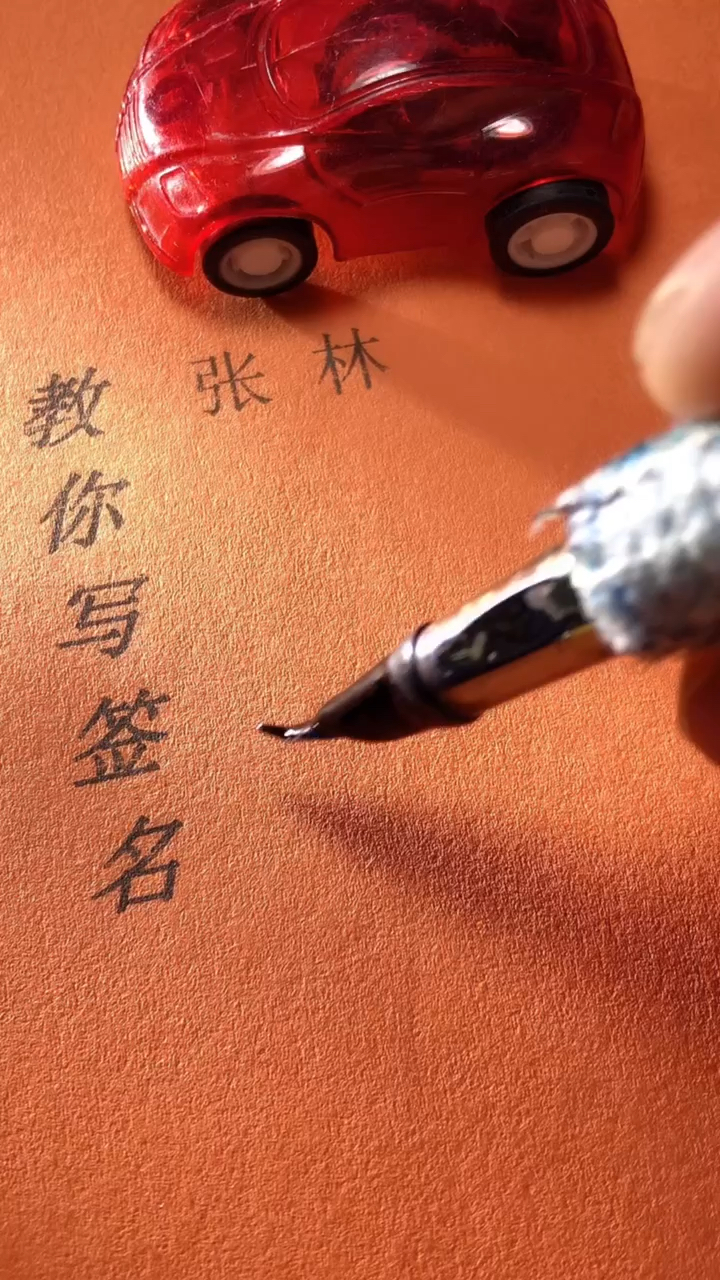 张林
教你写签名